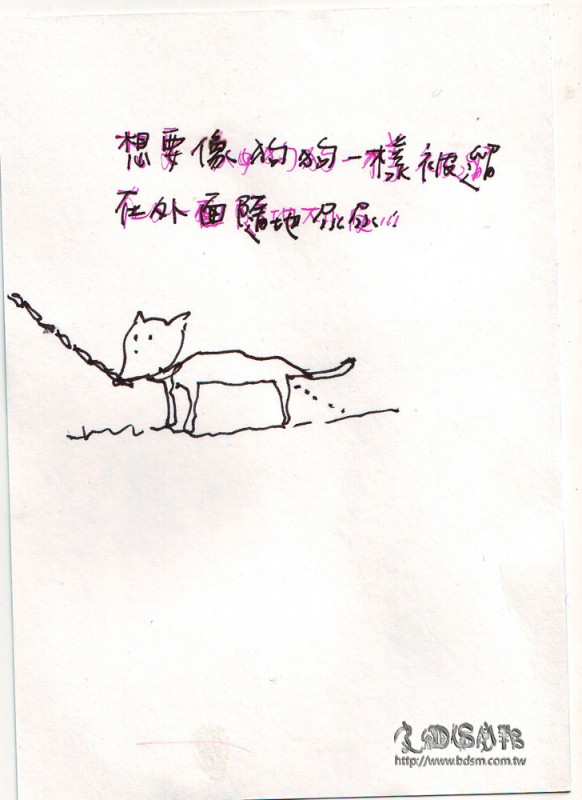 想要像狗狗一樣被遛
在外面隨地尿尿...
http://www.bdsm.com.tw